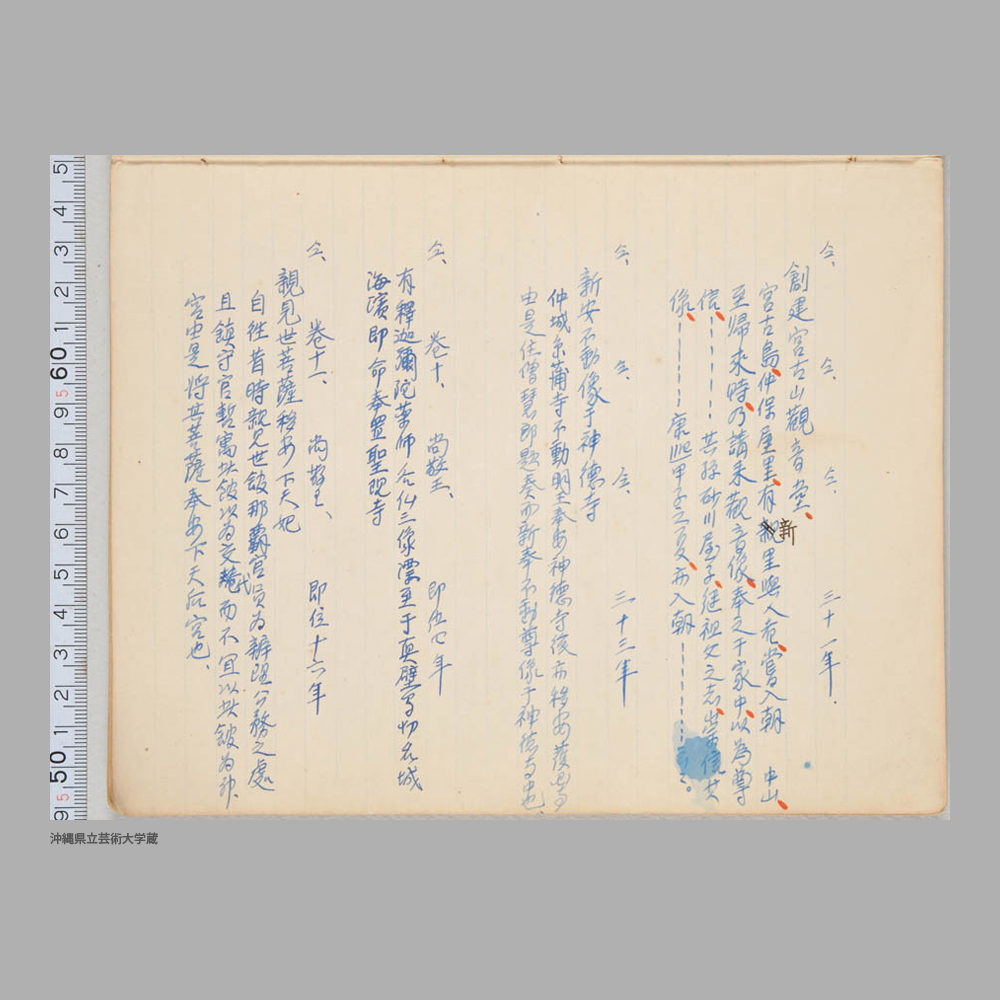 仝、 仝、 仝、 三十一年.
創建宮古山觀音堂、
宮古島、仲保屋里、有新里與人危、嘗入朝 中山、
至歸來時、乃請来觀音像、奉之于家中、以為尊
信、------ 其孫砂川屋子、継祖父之志、崇信其
像、------ 康熙甲子之夏、亦入朝------像
仝、 仝、 仝、 三十三年
新安不動像于神徳寺
仲城糸蒲寺不動明王奉安神徳寺後亦移安護国寺
由是住僧 題奏而新奉不動尊像于神徳寺也
仝、 卷十、 尚敬王、 即位七年
有釋迦彌陀薬師合仏三像漂至于真壁 名城
海濱即命奉置聖現寺
仝、 卷十一、 尚敬王、 即位十六年
親見世菩薩移安下天妃
自往昔時親見世館那覇官員為辦理公務之處
且鎮守官暫寓此館以為交代而不宜以此館為
宮由是将其菩薩奉安下天后宮也、
50 60
沖縄県立芸術大学蔵